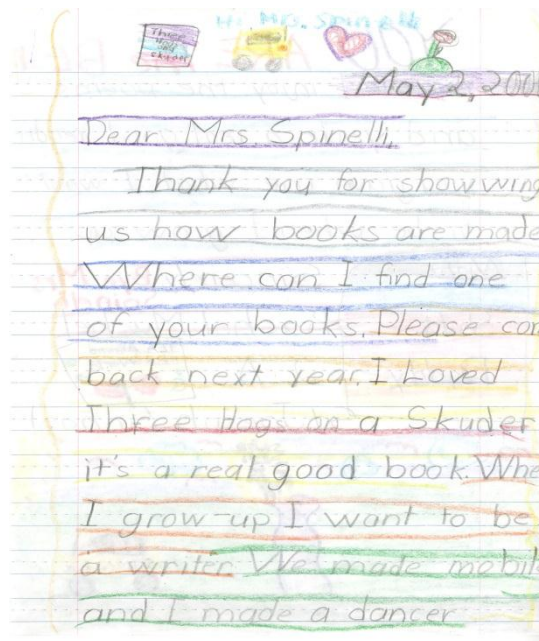 Hi Mrs. Spinelli
Three
Skuder
May 2, 20
Dear Mrs. Spinelli,
Thank you for showwing
us how books are made
Where can I find one
of your books. Please com
back next year. I Loved
Three Hogs on a Skuder
it's a real good book. Whe
I grow-up I want to be
a writer We made mobil
and I made a dancer